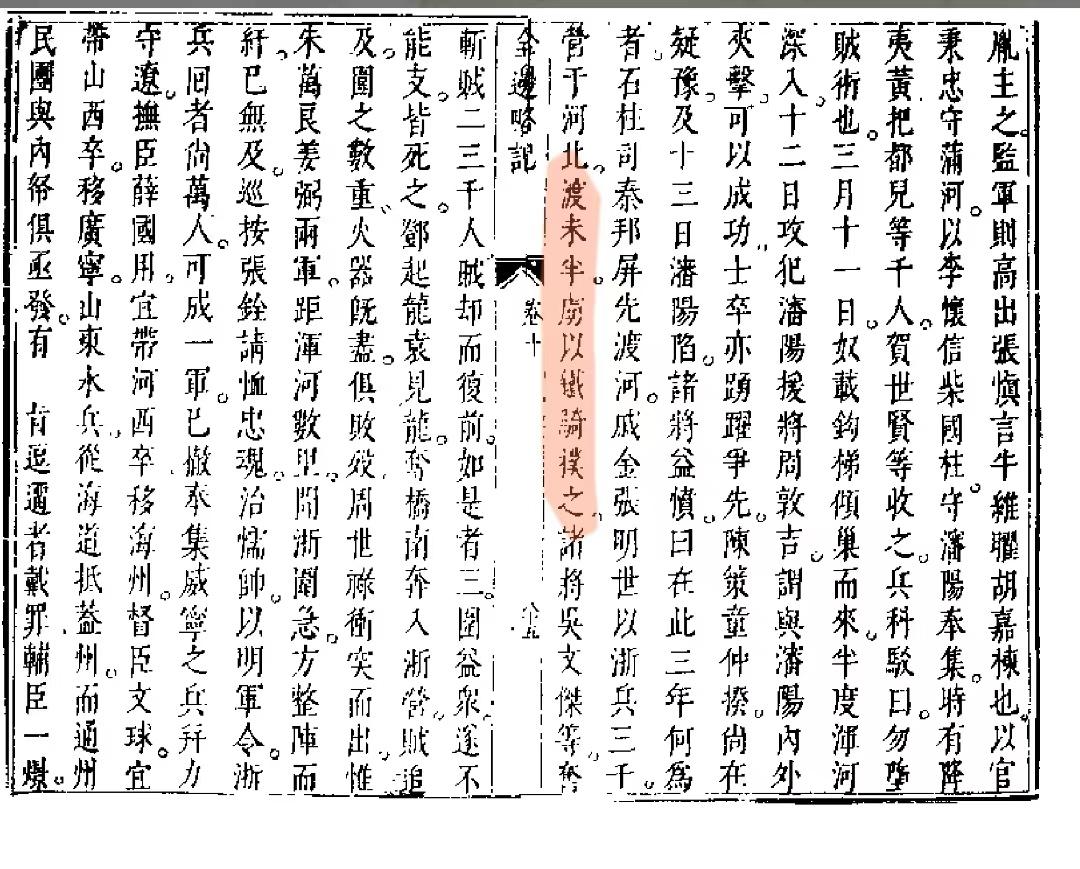 胤主之。監軍則高出張慎言牛維曜胡嘉棟也。以官
秉忠守蒲河。以李懷信柴國柱。守瀋陽奉集。時有降
夷黃把都兒等千人。賀世賢等收之。兵科駁曰。勿墮
賊術也。三月十一日。奴載鉤梯傾巢而來。半度渾河
深入。十二日攻犯瀋陽。援將周敦吉。謂與瀋陽內外
夾擊。可以成功。士卒亦踴躍爭先。陳策童仲揆。尚在
疑豫。及十三日瀋陽陷。諸將益憤。曰在此三年何為
者。石柱司秦邦屏先渡河。戚金張明世以浙兵三千。
營于河北。渡未半。虜以鐵騎撲之。諸將吳文傑等。奮
全邊略記
卷十
八十五
斬賊二三千人。賊却而復前。如是者三。圍益衆。遂不
能支。皆死之。鄧起龍袁見龍。奪橋南奔入浙營。賊追
及。圍之數重。火器旣盡。俱敗歿。周世祿衝突而出。惟
朱萬良姜弼兩軍。距渾河數里。聞浙圍急。方整陣而
紆已無及。巡按張銓請恤忠魂。治懦帥。以明軍令。浙
兵回者尚萬人。可成一軍。已撤奉集威寧之兵并力
守遼。撫臣薛國用。宜帶河西卒移海州。督臣文球。宜
帶山西卒。移廣寧。山東水兵。從海道抵葢州。而通州
民團與內帑俱亟發。有 肯逗遛者戴罪。輔臣一燝。